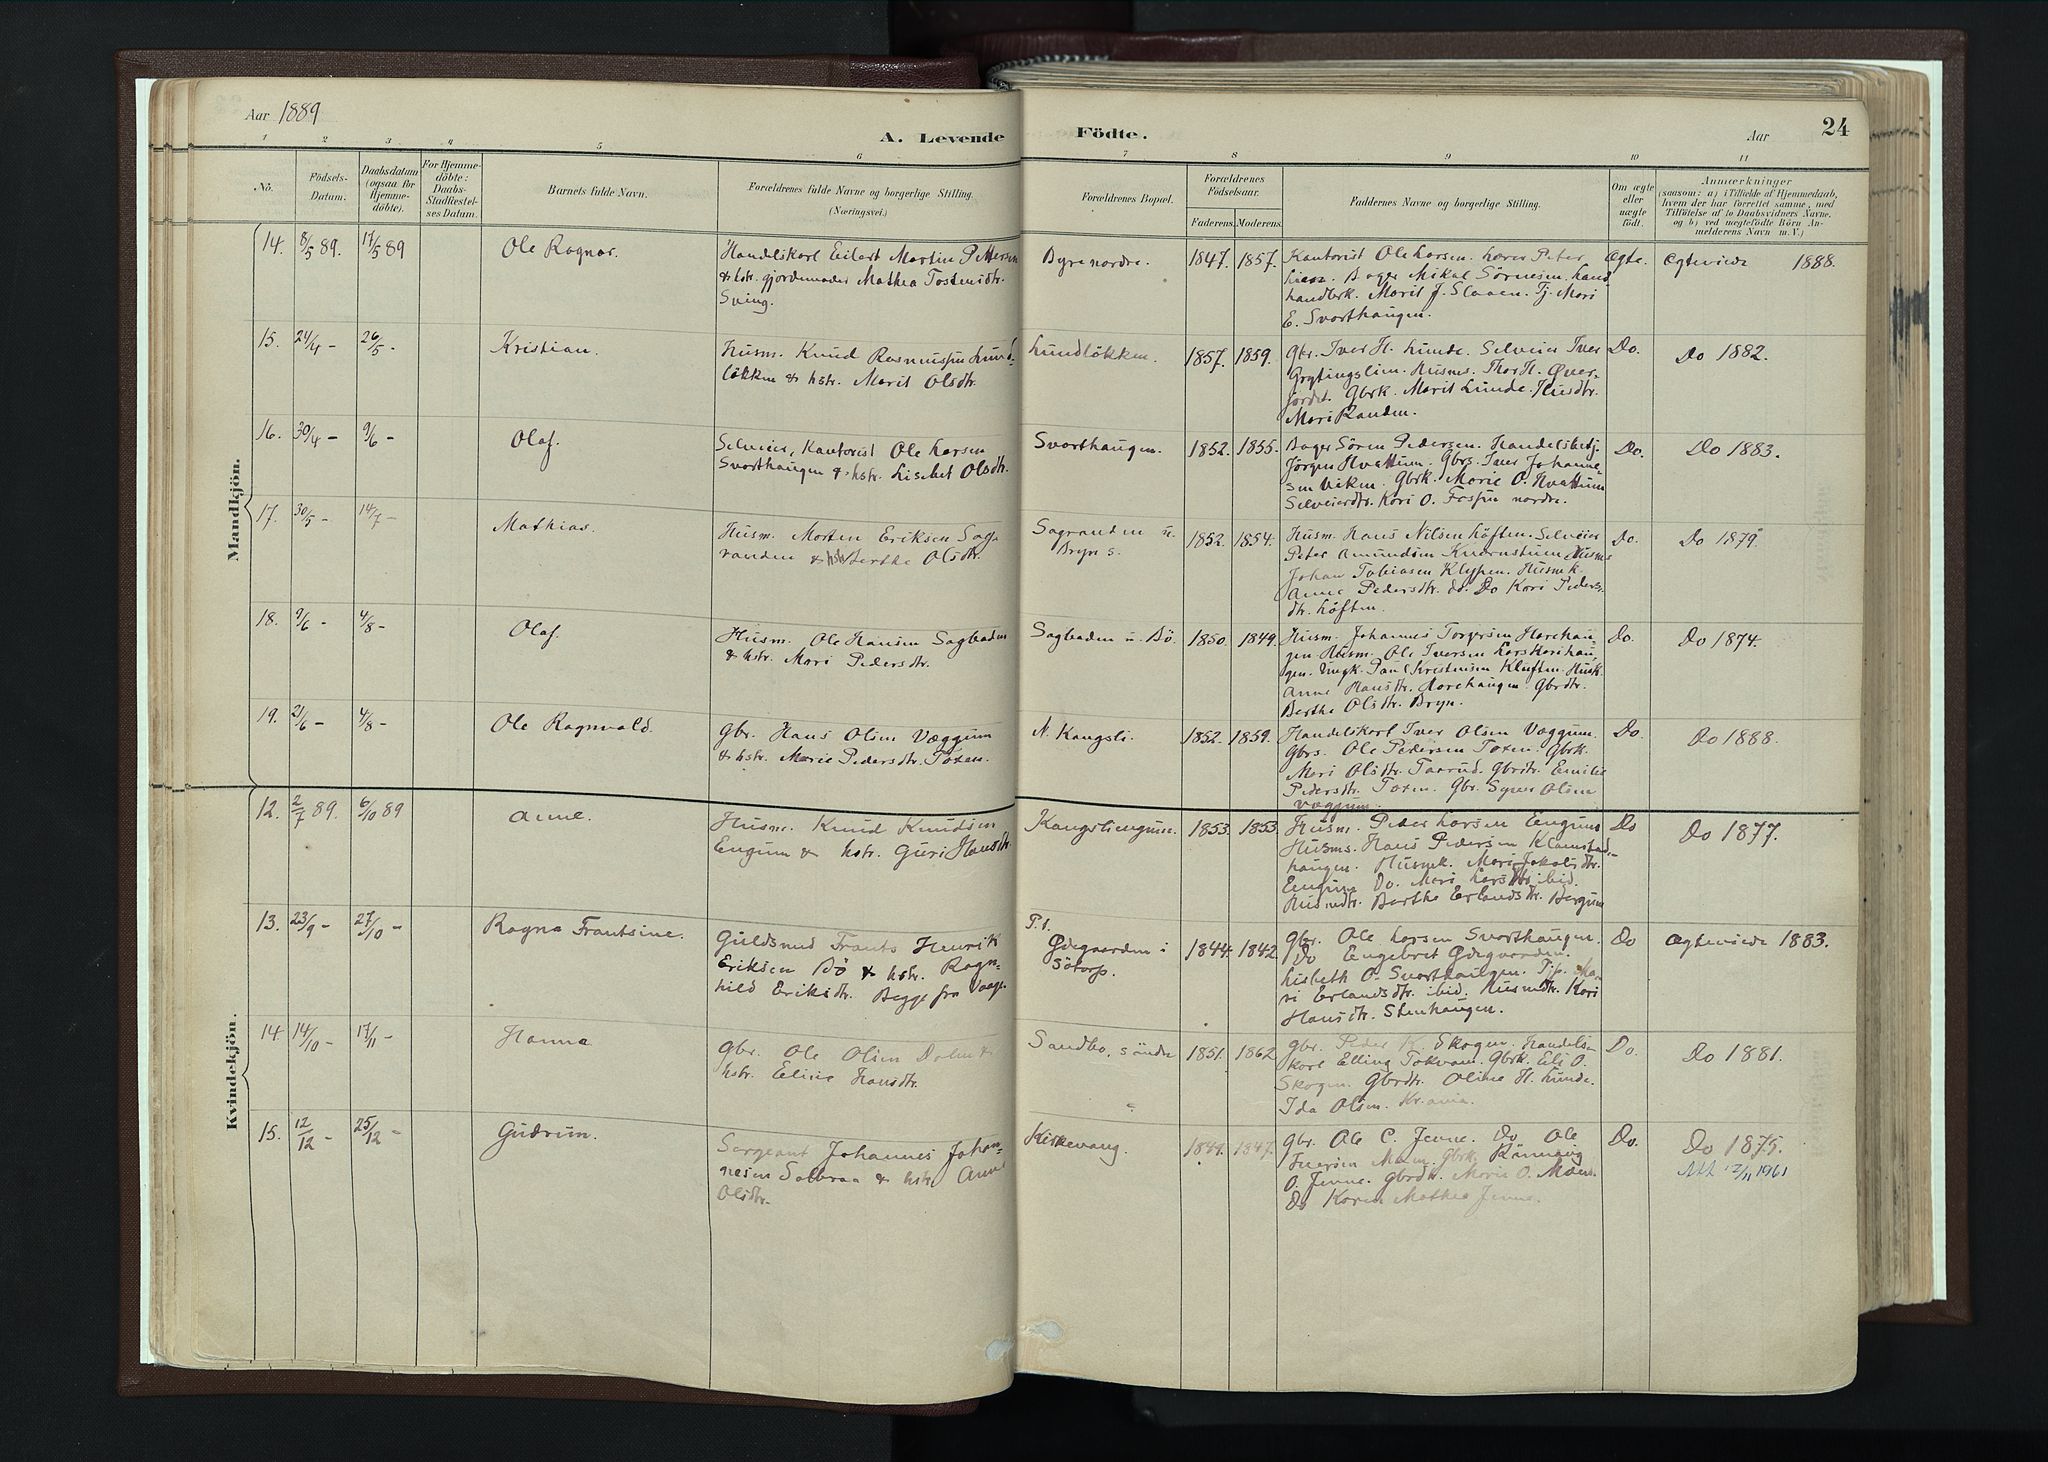 Aar 1889
A. Levende Födte.
Aar
24
1 2 3 4 5 6 7 8 9 10 11
Nö.
Födsels-
Datum.
Daabsdatum
(ogsaa for
Hjemme-
döbte).
For Hjemme-
döbte:
Daabs-
Stadfæstel-
ses Datum.
Barnets fulde Navn.
Forældrenes fulde Navne og borgerlige Stilling.
(Næringsvei.)
Forældrenes Bopæl.
Forældrenes
Födselsaar.
Faderens. Moderens.
Faddernes Navne og borgerlige Stilling.
Om ægte
eller
uægte
födt.
Anmærkninger
(saasom: a) i Tilfælde af Hjemmedaab,
hvem der har forrettet samme, med
Tilföielse af to Daabsvidners Navne,
og b) ved uægtefödte Börn An-
melderens Navn m. V.)
Mandkjön.
14. 8/5 89. 17/5 89
Ole Ragnar.
Handelskarl Eilert Martin Pettersen
& hstr. gjordemoder Mathea Tostensdtr.
Sving.
Byre nordre.
1847. 1857.
Kantorist Ole Larsen. Lærer Peter
Bager Mikal Sörnesen.
handlerk. Marit J. Slaaen. Tj. Mari
E. Svarthaugen.
Ægte.
Ægteviede 1888.
15. 24/4 – 26/5 –
Kristian.
Husm. Knud Rasmussen Lund-
lökken & hstr. Marit Olsdtr.
Lundlökken.
1857. 1859.
Gbr. Iver H. Lunde. Selveier Iver
Grytingslien. Husms. Thor H. Över-
jordet. Gbrk. Marit Lunde. Husdtr.
Mari Randen.
Do.
Do 1882.
16. 30/4 – 9/6 –
Olaf.
Selveier, Kantorist Ole Larsen
Svarthaugen & hstr. Lisebet Olsdtr.
Svarthaugen.
1852. 1855.
Bager Sören Pedersen. Handelsbetj.
Jörgen Hvattum. Gbrs. Iver Johanne-
sen Viken. Gbrk. Marie O. Hvattum
Selveierdtr. Kari O. Fossen nordre.
Do.
Do 1883.
17. 30/5 – 14/7 –
Mathias.
Husm. Morten Eriksen Sag-
randen & hstr Berthe Olsdtr.
Sagranden u.
Bryn s.
1852. 1854.
Husm. Hans Nilsen Löften. Selveier
Peter Amundsen Kvarnstuen. Husms
Johan Tobiasen Klypen. Husmk.
Anne Pedersdtr. do. Do Kari Peders-
dtr. Löften.
Do.
Do 1879.
18. 9/6 – 4/8 –
Olaf.
Husm. Ole Hansen Sagbaden
& hstr. Mari Pedersdtr.
Sagbaden u. Bö.
1850. 1849.
Husm. Johannes Torgersen Harehau-
gen Husm. Ole Iversen Larskarihau-
gen. Ungk. Paul Kristensen Kluften. Husk.
Anne Hansdtr. Harehaugen. Gbrdtr.
Berthe Olsdtr. Bryn.
Do.
Do 1874.
19. 21/6 – 4/8 –
Ole Ragnvald.
Gbr. Hans Olsen Væggum
& hstr. Marie Pedersdtr. Toxen.
N. Kangsli.
1852. 1859.
Handelskarl Iver Olsen Væggum.
Gbrs. Ole Pedersen Toxen. Gbrk.
Mari Olsdtr. Taarud. Gbrdtr. Emilie
Pedersdtr. Toxen. Gbr. Syver Olsen
Væggum.
Do.
Do 1888.
Kvindekjön.
12. 2/7 89. 6/10 89
Anne.
Husm. Knud Knudsen
Engum & hstr. Guri Hansdtr.
Kangsliengum.
1853. 1853.
Husm. Peder Larsen Engum
Husms. Hans Pedersen Klamstad-
haugen. Husmk. Mari Jakobsdtr.
Engum. Do. Mari Larsdtr ibid.
Husmdtr. Berthe Erlandsdtr. Bergum
Do
Do 1877.
13. 23/9 – 27/10 –
Ragna Frantsine.
Guldsmed Frants Henrik
Eriksen Bö & hstr. Ragn-
hild Eriksdtr. Begge fra Vaage.
P.t.
Ödegaarden i
Sötorp.
1844. 1842.
Gbr. Ole Larsen Svarthaugen.
Do Engebret Ödegaarden.
Lisbeth O. Svarthaugen. Pige Ma-
ri Erlandsdtr. ibid. Husmdtr. Kari
Hansdtr. Stenhaugen.
Do
Ægteviede 1883.
14. 14/10 – 17/11 –
Hanna
Gbr. Ole Olsen Dalen &
hstr. Eline Hansdtr.
Sandbo, söndre
1851. 1862
Gbr. Peder K. Skogen. Handels-
karl Elling Tokvam. Gbrk. Eli O.
Skogen. Gbrdtr. Oline H. Lunde.
Ida Olsen. Kr.ania.
Do.
Do 1881.
15. 12/12 – 25/12 –
Gudrun.
Sergeant Johannes Johan-
nesen Solbraa & hstr. Anne
Olsdtr.
Kirkevang.
1849. 1847.
Gbr. Ole C. Jenne. Do Ole
Iversen Moen. Gbrk. Rönnaug
O. Jenne. Gbrdtr. Marie O. Moen.
Do Karen Mathea Jenne.
Do.
Do 1875.
Att 12/11 1961